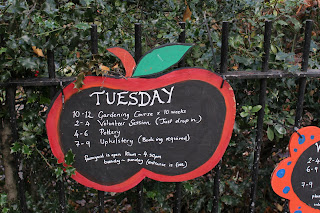 TUESDAY
10-12 Gardening Course x 10 weeks
2-4 Volunteer Session (Just drop in)
4-6 Pottery
7-9 Upholstery (Booking required)
is open 10am - 4.30pm
tuesday - sunday (entrance is free)
W
2-4
4-6
7-9